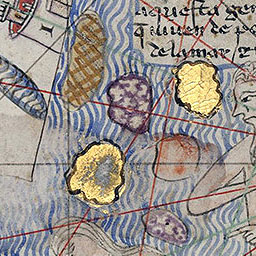 aquesta gen
qui uiuen de pe
de la mar e